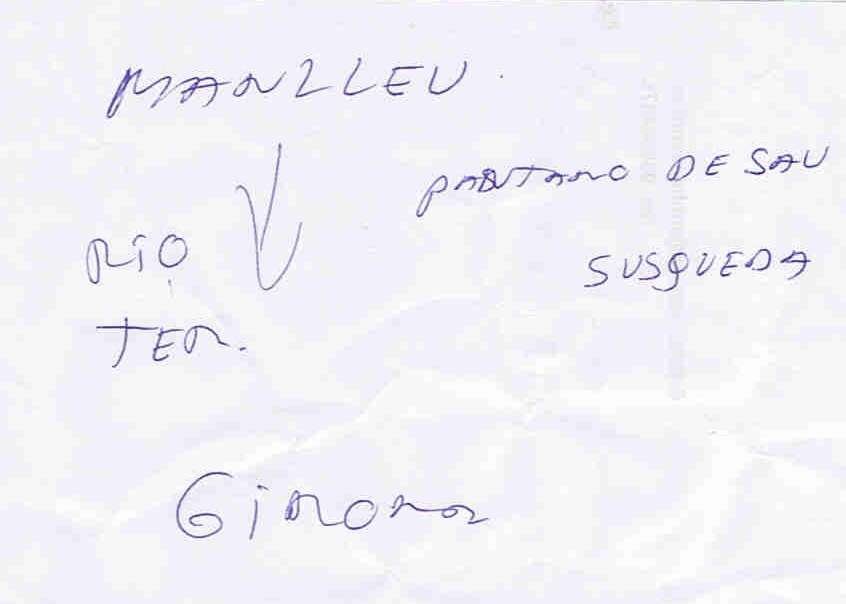 MANLLEU
PANTANO DE SAU
RIO
SUSQUEDA
TER.
Girona